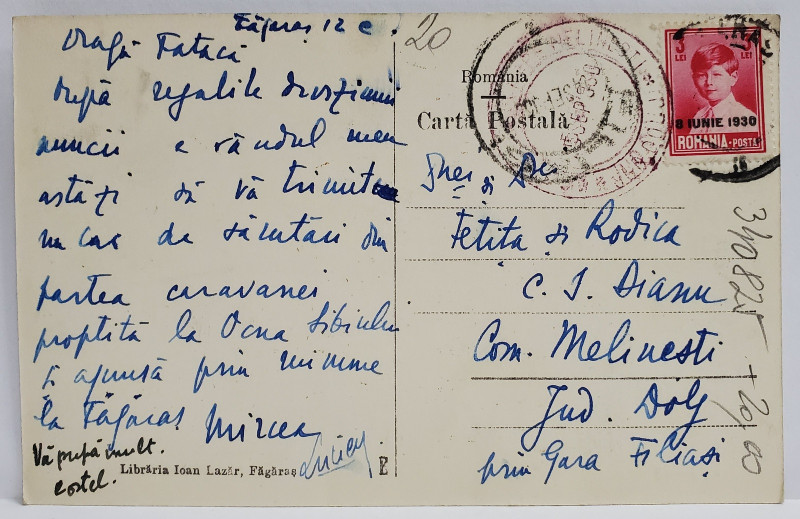 Făgăraș 12 c.
Dragă Tataca
După regulile diviziunii
muncii e rândul meu
astăzi să vă trimit
un car de sărutări din
partea caravanei
proptită la Ocna Sibiului
și ajunsă prin minune
la Făgăraș
Mircea
Vă pupă mult.
Costel.
Lucian
Librăria Ioan Lazăr, Făgăraș
20
România
Cartă Poștală
3 LEI
3 LEI
8 IUNIE 1930
ROMANIA·POSTA
Dnei și Dlui
Tetita și Rodica
C. I. Dianu
Com. Melinesti
Jud. Dolj
prin Gara Filiași